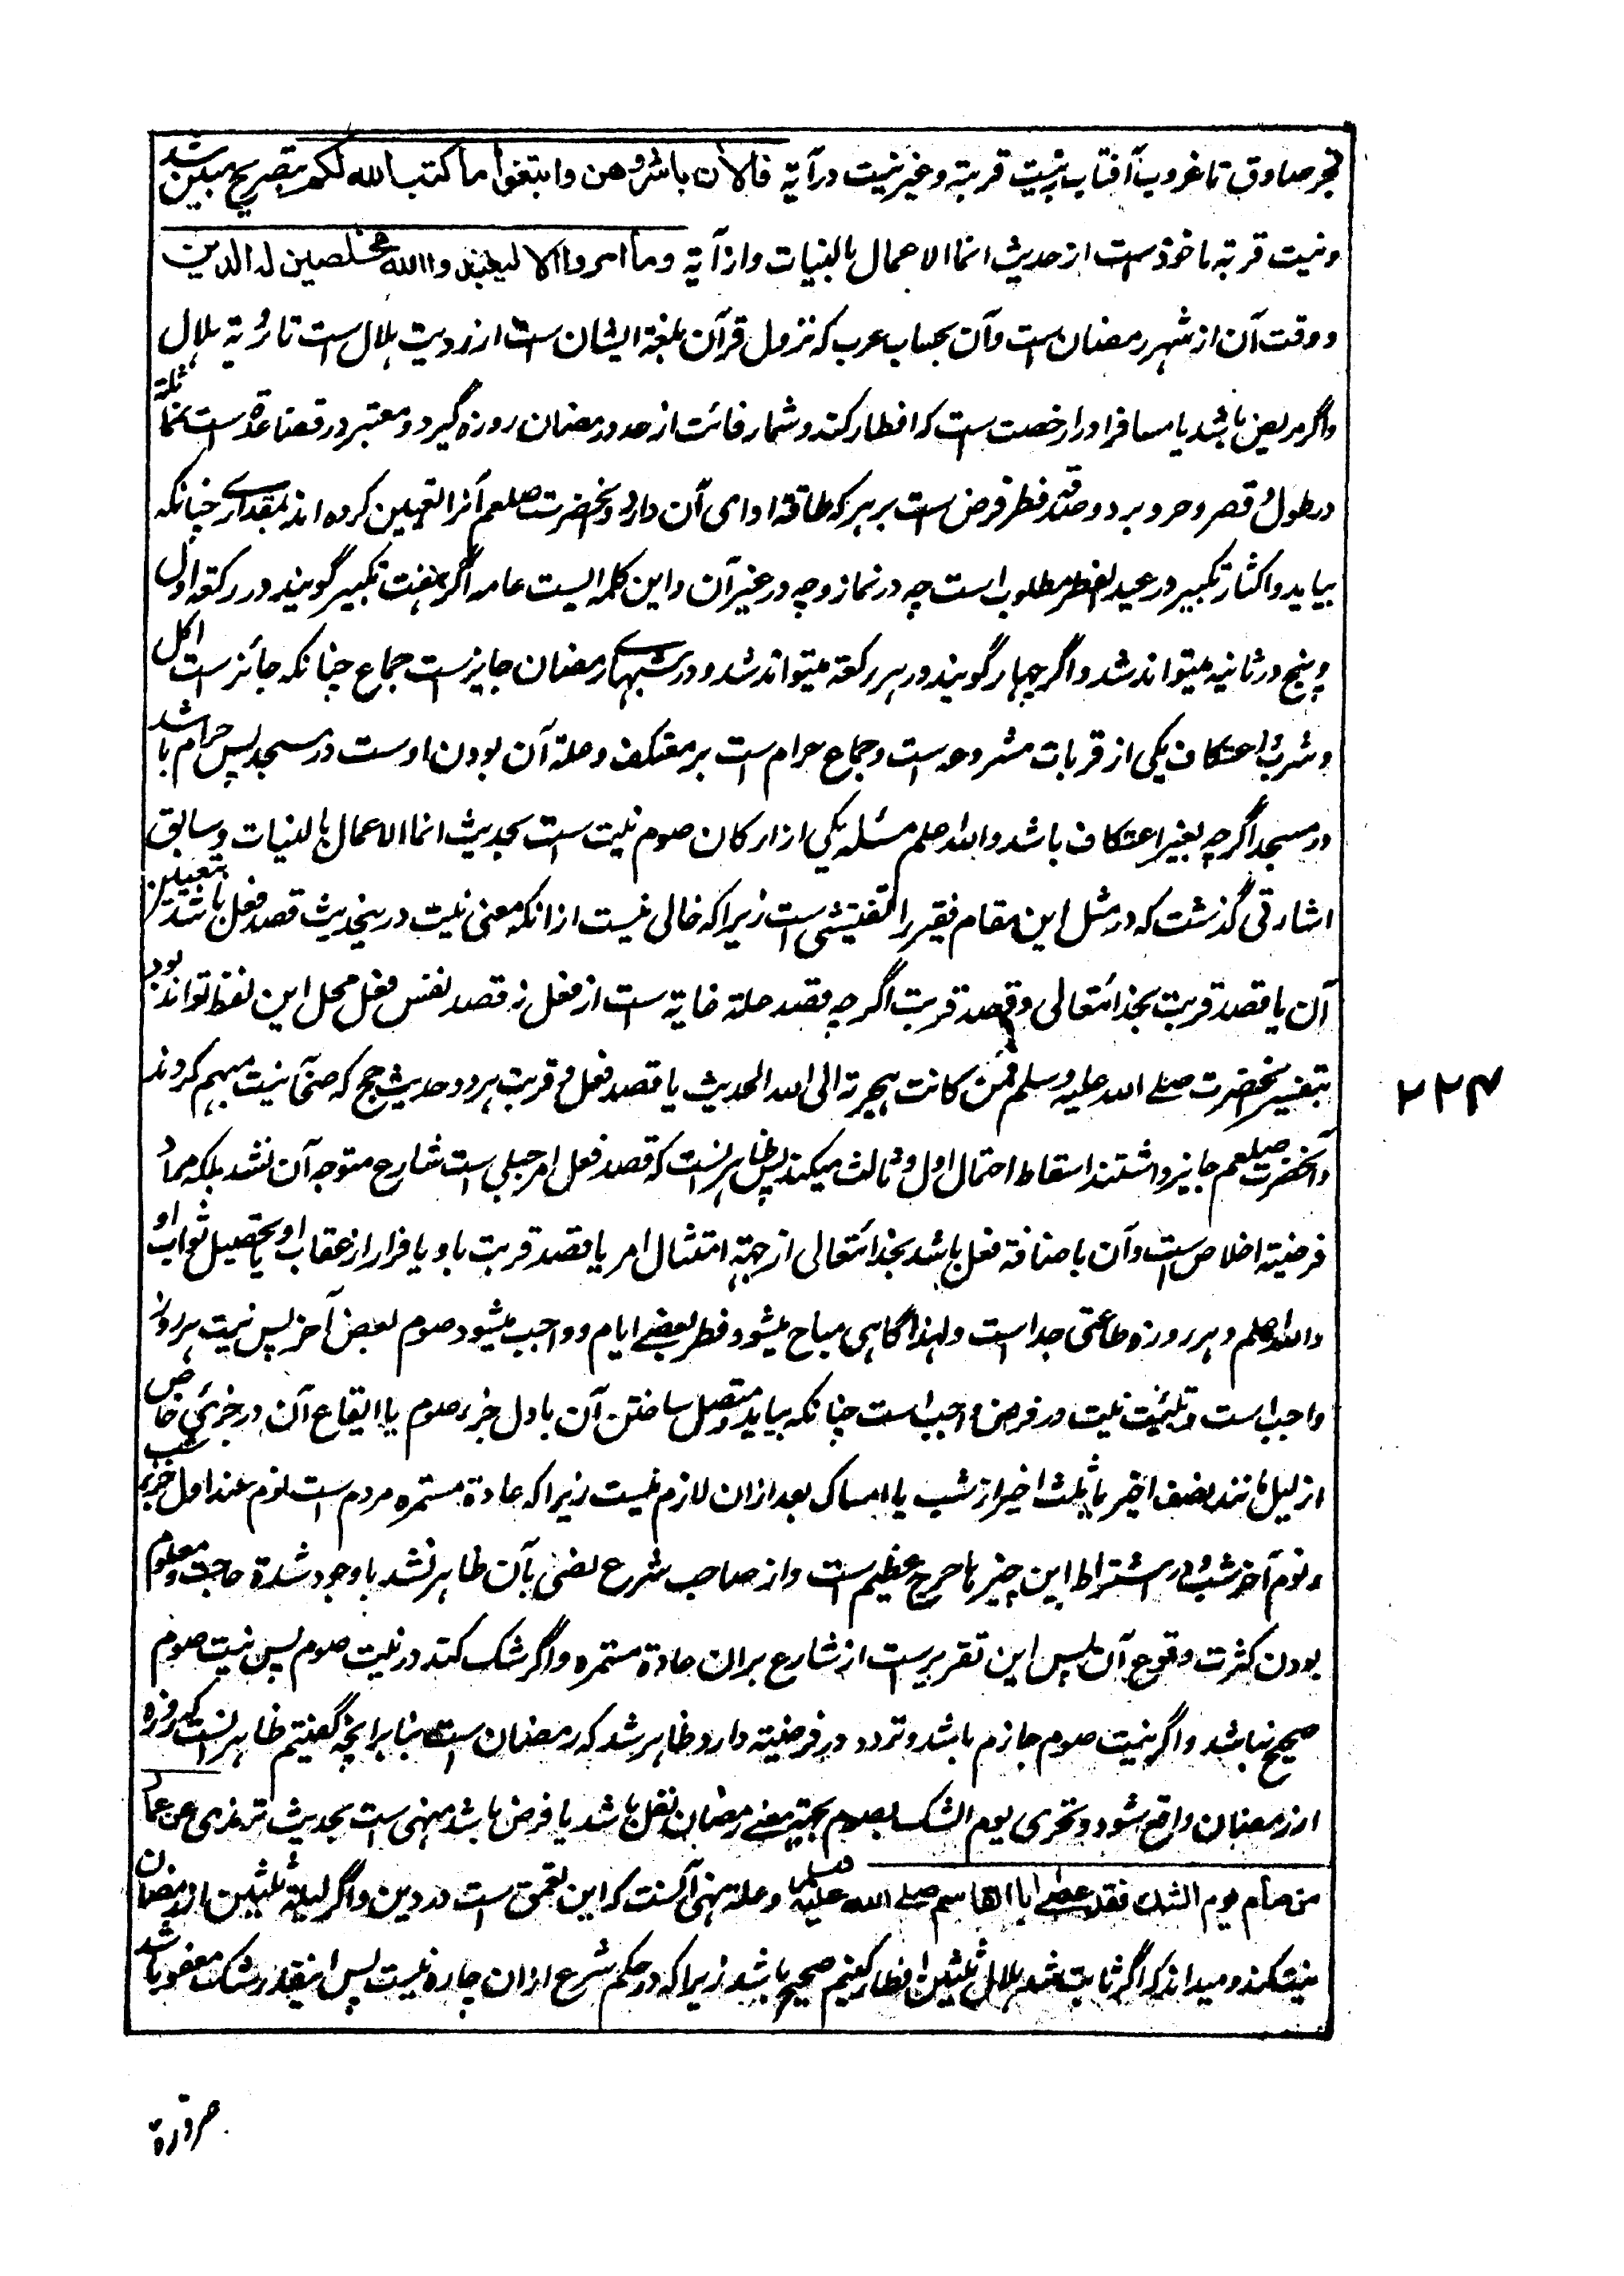 فجر صادق تا غروب آفتاب بنیت قربته و غیر نیت در آیة فالان باشروهن وابتغوا ما کتب الله لکم بتصریح مبین شد
و نیت قربته ماخوذ ست از حدیث انما الاعمال بالنیات و از آیة وما امروا الا لیعبدوا الله مخلصین له الدین
و وقت آن از شهر رمضان ست و آن بحساب عرب که نزول قرآن بلغة ایشان ست از رویت هلال ست تا رؤیة هلال
و اگر مریض باشد یا مسافر او را رخصت ست که افطار کند و شمار فائت از عدد رمضان روزه گیرد و معتبر در قضا عدة ست نه مماثلة
در طول و قصر و حر و برد و صدقه فطر فرض ست بر هر که طاقة ادای آن دارد و آنحضرت صلعم آنرا تعیین کرده اند بمقداری چنانکه
بیاید و اکثار تکبیر در عید الفطر مطلوب است چه در نماز و چه در غیر آن و این کلمه ایست عامه اگر هفت تکبیر گویند در رکعة اول
و پنج در ثانیه میتواند شد و اگر چهار گویند در هر رکعة میتواند شد و در شبهای رمضان جایز ست جماع چنانکه جائز ست اکل
و شرب و اعتکاف یکی از قربات مشروعه است و جماع حرام ست بر معتکف و علة آن بودن اوست در مسجد پس حرام باشد
در مسجد اگرچه بغیر اعتکاف باشد و الله اعلم مسئله یکی از ارکان صوم نیت ست بحدیث انما الاعمال بالنیات و سابق
اشارتی گذشت که در مثل این مقام فقیر را تفتیشی است زیرا که خالی نیست از آنکه معنی نیت درینحدیث قصد فعل باشد بتعیین
آن یا قصد قربت بخدایتعالی و قصد قربت اگرچه قصد علة غایة ست از فعل نه قصد نفس فعل محل این لفظ تواند بود
بتفسیر آنحضرت صلے الله علیه وسلم فمن کانت هجرته الی الله الحدیث یا قصد فعل و قربت هر دو و حدیث حج که صحابه نیت مبهم کردند
و آنحضرت صلعم جایز داشتند اسقاط احتمال اول و ثالث میکند پس ظاهر آنست که قصد فعل امر جبلی است شارع متوجه آن نشد بلکه مراد
فرضیته اخلاص ست و آن باضافة فعل باشد بخدایتعالی از جهة امتثال امر یا قصد قربت باو یا فرار از عقاب او یا تحصیل ثواب او
و الله اعلم و هر روزه طاعتی جداست و لهذا گاهی مباح میشود فطر بعضے ایام و واجب میشود صوم بعض آخر پس نیت هر روز
واجب است و تبییت نیت در فرض واجب است چنانکه بیاید و متصل ساختن آن باول جزء صوم یا ایقاع آن در جزئی خاص
از لیل مانند نصف اخیر یا ثلث اخیر از شب یا امساک بعد از ان لازم نیست زیرا که عادة مستمره مردم ست نوم عند اول جزء شب
و نوم آخر شب و در اشتراط این چیزها حرج عظیم ست و از صاحب شرع نصی بآن ظاهر نشد باوجود شدة حاجت و معلوم
بودن کثرت وقوع آن پس این تقریر ست از شارع بران عادة مستمره و اگر شک کند در نیت صوم پس نیت صوم
صحیح نباشد و اگر نیت صوم جازم باشد و تردد در فرضیته دارد و ظاهر شد که رمضان است بنا بر آنچه گفتیم ظاهر آنست که روزه
از رمضان واقع شود و تحری یوم الشک بصوم بجهة معنے رمضان نفل باشد یا فرض باشد منهی ست بحدیث ترمذی عن عمار
من صام یوم الشک فقد عصے ابا القاسم صلے الله علیه وسلم و علة نهی آنست که این تعمق ست در دین و اگر لیلة ثلثین از رمضان
نیت کند و میداند که اگر ثابت شد هلال ثلثین افطار کنیم صحیح باشد زیرا که در حکم شرع از ان چاره نیست پس اینقدر شک معفو باشد
۲۲۴
ضرورة